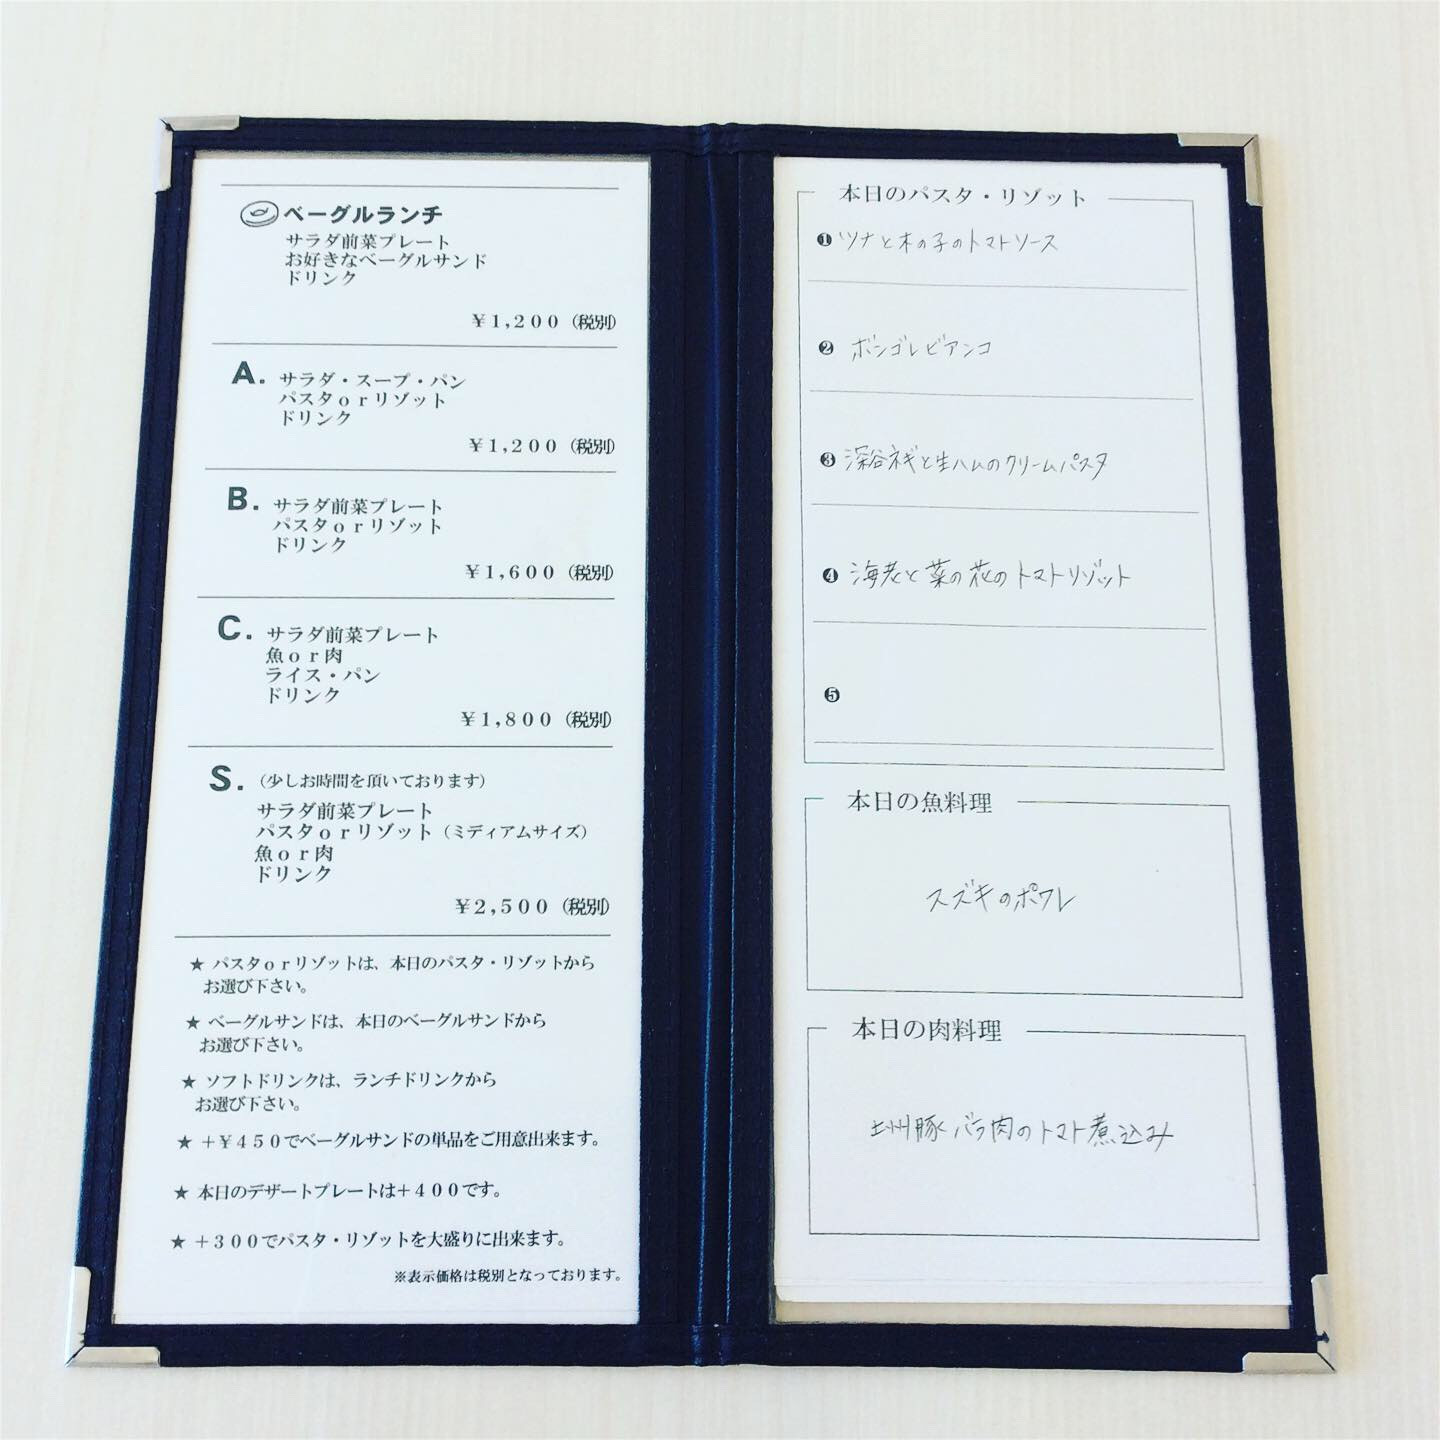 ベーグルランチ
サラダ前菜プレート
お好きなベーグルサンド
ドリンク
¥1,200（税別）
A. サラダ・スープ・パン
パスタorリゾット
ドリンク
¥1,200（税別）
B. サラダ前菜プレート
パスタorリゾット
ドリンク
¥1,600（税別）
C. サラダ前菜プレート
魚or肉
ライス・パン
ドリンク
¥1,800（税別）
S.（少しお時間を頂いております）
サラダ前菜プレート
パスタorリゾット（ミディアムサイズ）
魚or肉
ドリンク
¥2,500（税別）
★ パスタorリゾットは、本日のパスタ・リゾットから
お選び下さい。
★ ベーグルサンドは、本日のベーグルサンドから
お選び下さい。
★ ソフトドリンクは、ランチドリンクから
お選び下さい。
★ +¥450でベーグルサンドの単品をご用意出来ます。
★ 本日のデザートプレートは+400です。
★ +300でパスタ・リゾットを大盛りに出来ます。
※表示価格は税別となっております。
本日のパスタ・リゾット
❶ ツナと木の子のトマトソース
❷ ボンゴレビアンコ
❸ 深谷ネギと生ハムのクリームパスタ
❹ 海老と菜の花のトマトリゾット
❺
本日の魚料理
スズキのポワレ
本日の肉料理
豚バラ肉のトマト煮込み